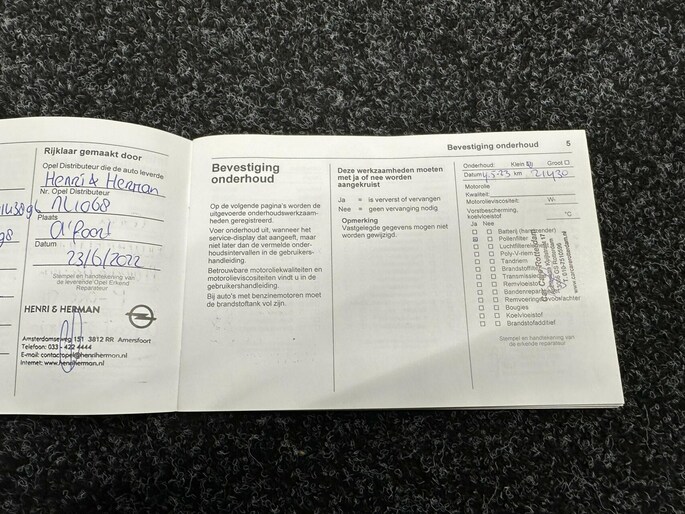 Rijklaar gemaakt door
Opel Distributeur die de auto leverde
Henri & Herman
Nr. Opel Distributeur
NL1068
Plaats
A'foort
Datum
23/6/2022
Stempel en handtekening van
de leverende Opel Erkend
Reparateur
HENRI & HERMAN
Amsterdamseweg 151 3812 RR Amersfoort
Telefoon: 033 - 422 4444
E-mail: contactopel@henriherman.nl
Internet: www.henriherman.nl
Bevestiging
onderhoud
Op de volgende pagina's worden de
uitgevoerde onderhoudswerkzaam-
heden geregistreerd.
Voer onderhoud uit, wanneer het
service-display dat aangeeft, maar
niet later dan de vermelde onder-
houdsintervallen in de gebruikers-
handleiding.
Betrouwbare motoroliekwaliteiten en
motorolieviscositeiten vindt u in de
gebruikershandleiding.
Bij auto's met benzinemotoren moet
de brandstoftank vol zijn.
Deze werkzaamheden moeten
met ja of nee worden
aangekruist
Ja = is ververst of vervangen
Nee = geen vervanging nodig
Opmerking
Vastgelegde gegevens mogen niet
worden gewijzigd.
Bevestiging onderhoud 5
Onderhoud: Klein Groot
Datum 4-5-23 km 21430
Motorolie
Kwaliteit:
Motorolieviscositeit: W-
Vorstbescherming,
koelvloeistof °C
Ja Nee
Batterij (handzender)
Pollenfilter
Luchtfilterelement
Poly-V-riem
Tandriem
Brandstoffilter
Remvloeistof
Bandenreparatieset
Bougies
Koelvloeistof
Brandstofadditief
Stempel en handtekening van
de erkende reparateur
Rotterdam